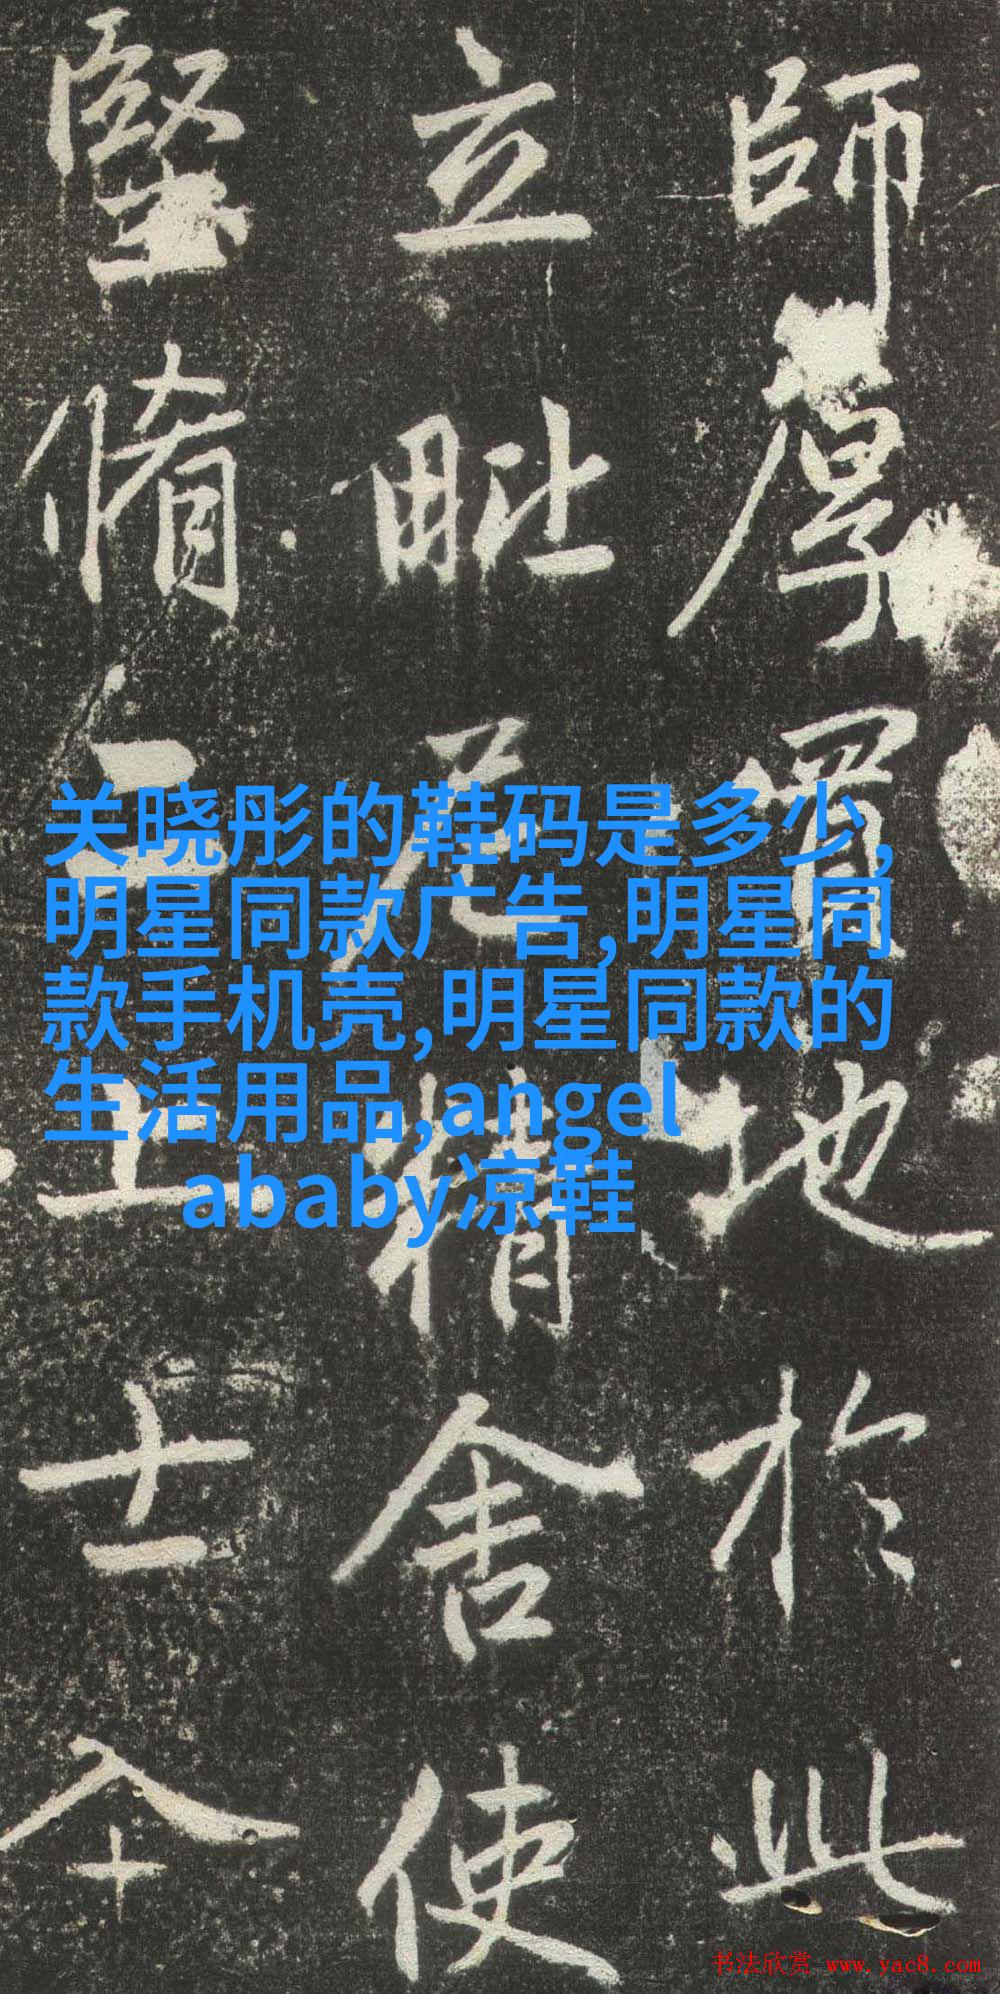 師厚買地於此
立毗尼精舍使
堅脩上士
关晓彤的鞋码是多少,
明星同款广告,明星同
款手机壳,明星同款的
生活用品,angel
ababy凉鞋
书法欣赏 www.yac8.com